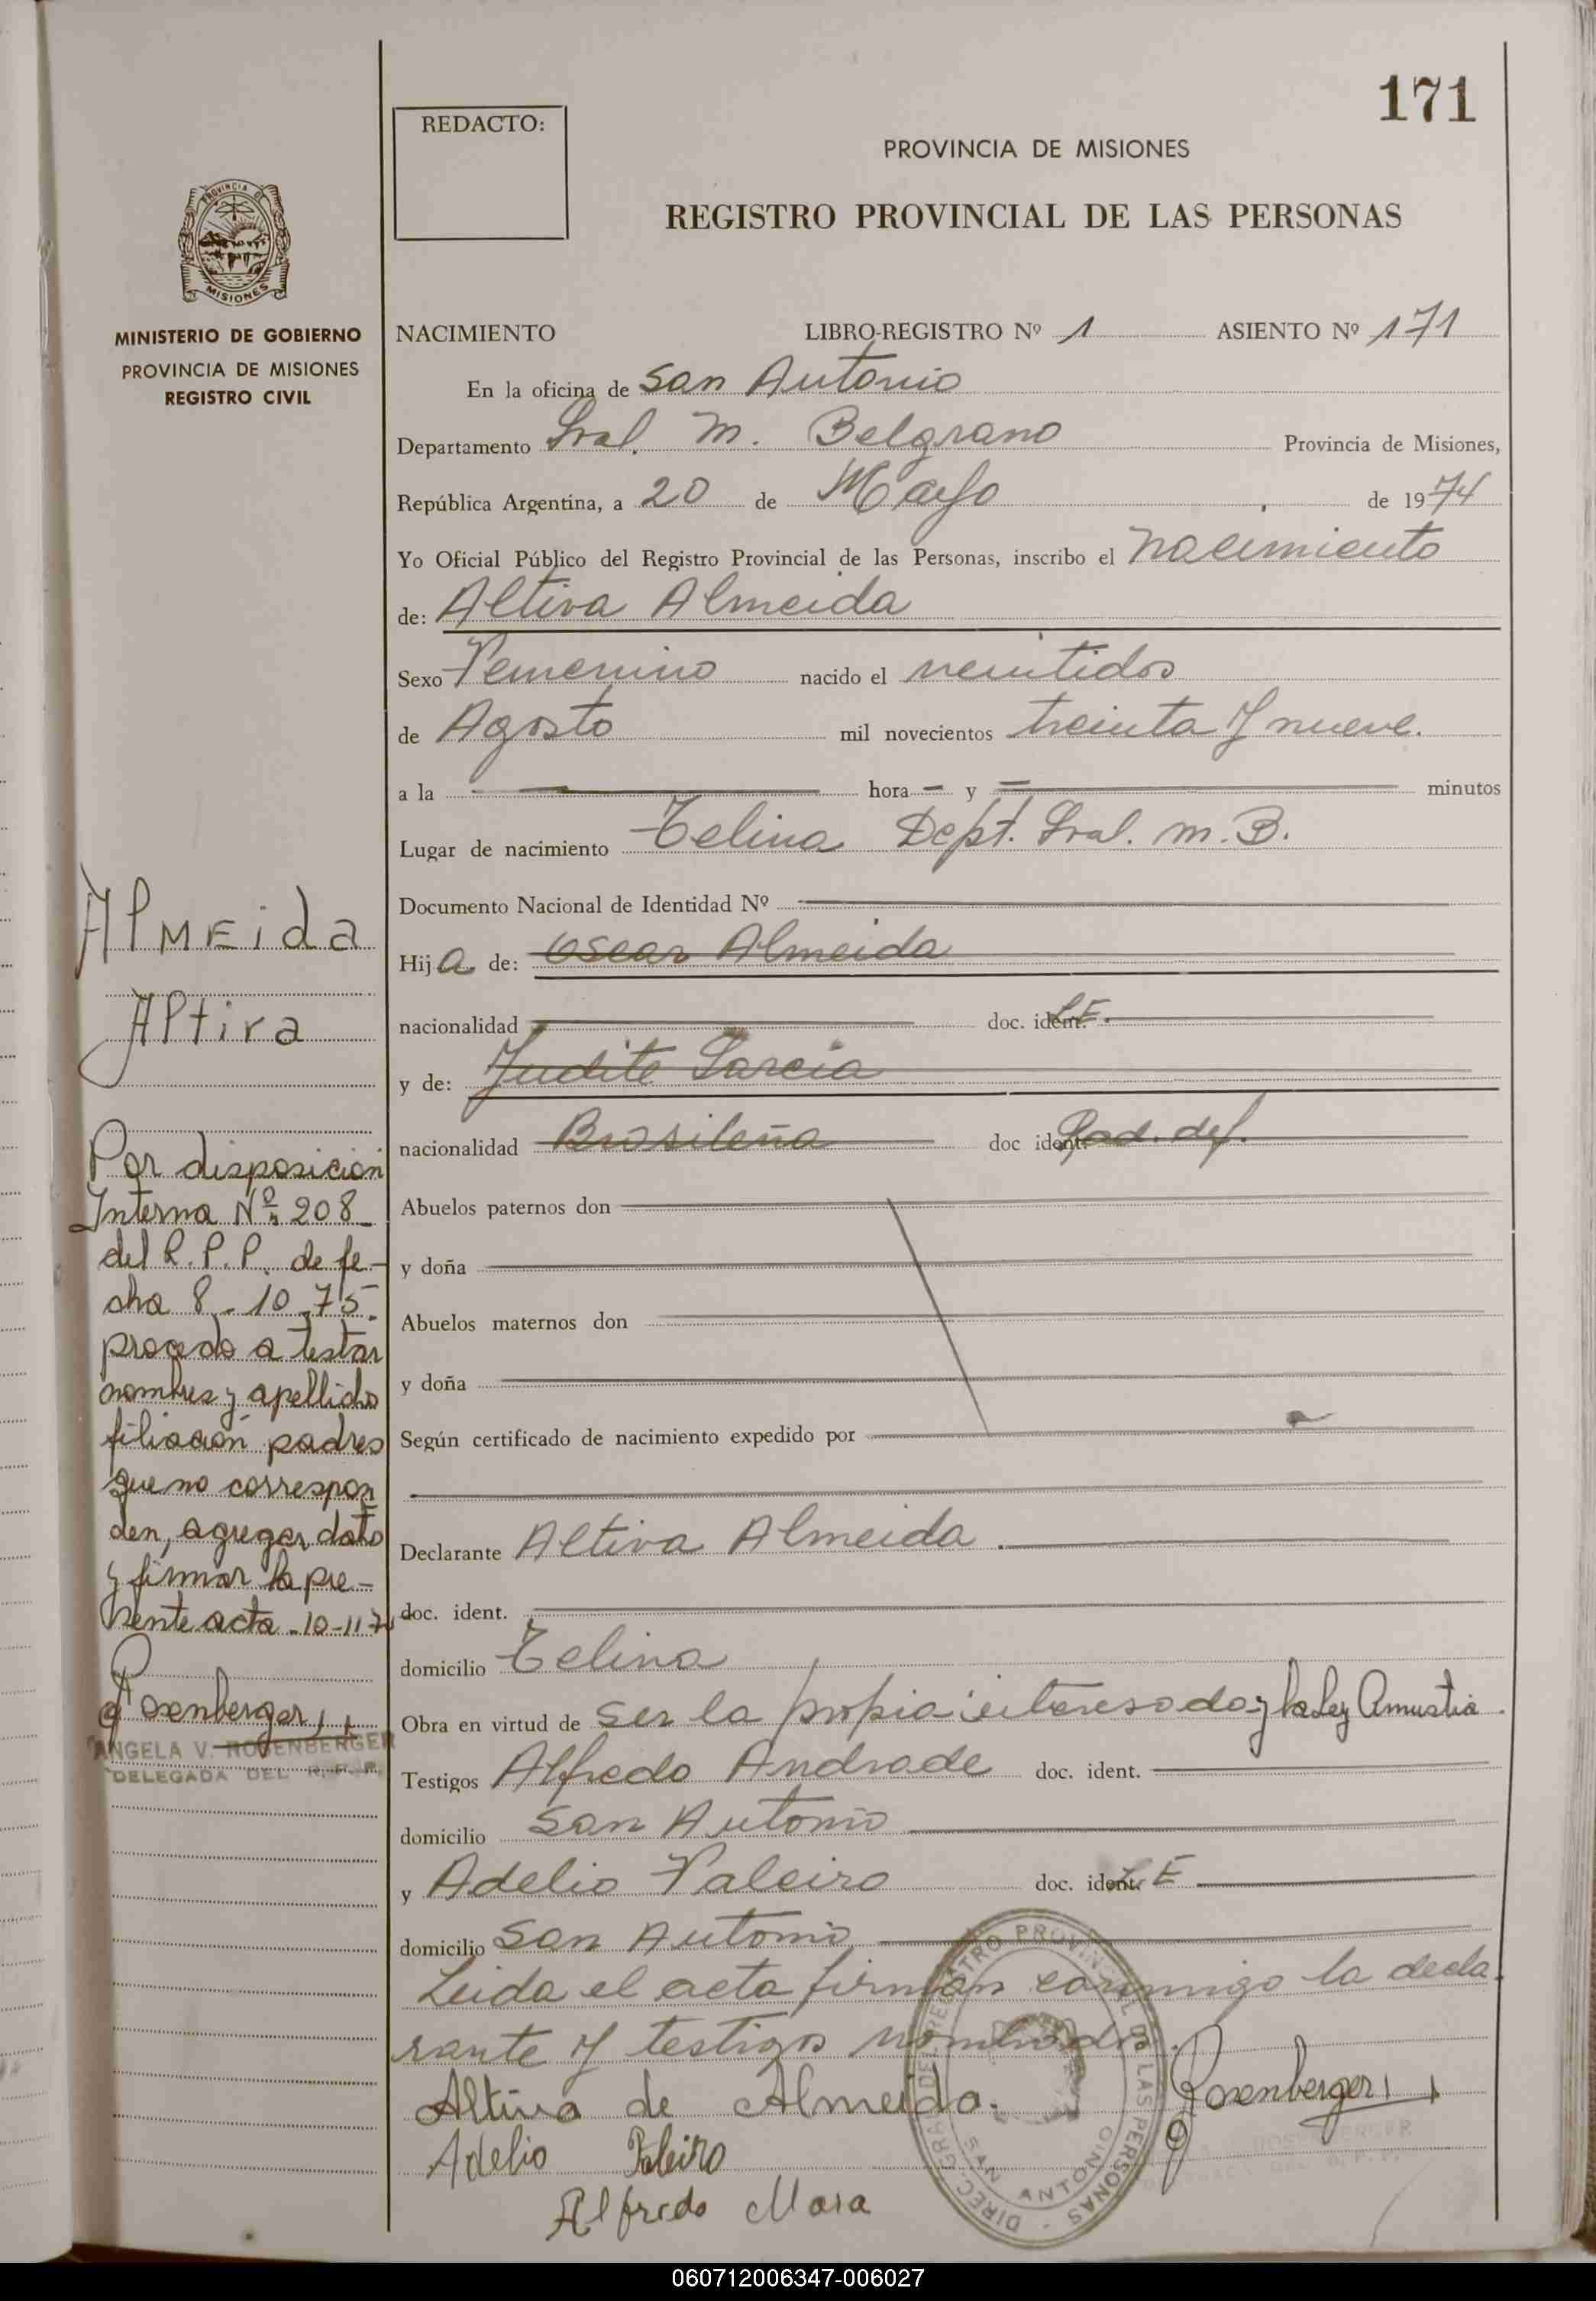 171
REDACTO:
PROVINCIA DE MISIONES
REGISTRO PROVINCIAL DE LAS PERSONAS
PROVINCIA DE
MISIONES
MINISTERIO DE GOBIERNO
PROVINCIA DE MISIONES
REGISTRO CIVIL
NACIMIENTO LIBRO-REGISTRO Nº 1 ASIENTO Nº 171
En la oficina de San Antonio
Departamento Gral. M. Belgrano Provincia de Misiones,
República Argentina, a 20 de Mayo de 1974
Yo Oficial Público del Registro Provincial de las Personas, inscribo el nacimiento
de: Altiva Almeida
Sexo Femenino nacido el veintidos
de Agosto mil novecientos treinta y nueve.
a la hora y minutos
Lugar de nacimiento Celina Dept. Gral. M. B.
Documento Nacional de Identidad Nº
Hija de: Oscar Almeida
nacionalidad doc. ident. LE.
y de: Judite Garcia
nacionalidad Brasileña doc ident.
Abuelos paternos don
y doña
Abuelos maternos don
y doña
Según certificado de nacimiento expedido por
Declarante Altiva Almeida.
doc. ident.
domicilio Celina
Obra en virtud de ser la propia interesada y la Ley Amnistia.
Testigos Alfredo Andrade doc. ident.
domicilio San Antonio
y Adelio Paleiro doc. ident. LE
domicilio San Antonio
Leida el acta firman conmigo la decla-
rante y testigos nombrados.
Altiva de Almeida.
Rosenberger
Adelio Paleiro
Alfredo Mora
Almeida
Altiva
Por disposición
Interna Nº 208
del R.P.P. de fe-
cha 8-10-75.
procedo a testar
nombres y apellido
filiación padres
que no correspon
den, agregar dato
y firmar la pre-
sente acta. 10-11-75
Rosenberger
ANGELA V. ROSENBERGER
DELEGADA DEL R.P.P.
DIREC. GRAL. DEL REGISTRO PROVINCIAL DE LAS PERSONAS
SAN ANTONIO
060712006347-006027